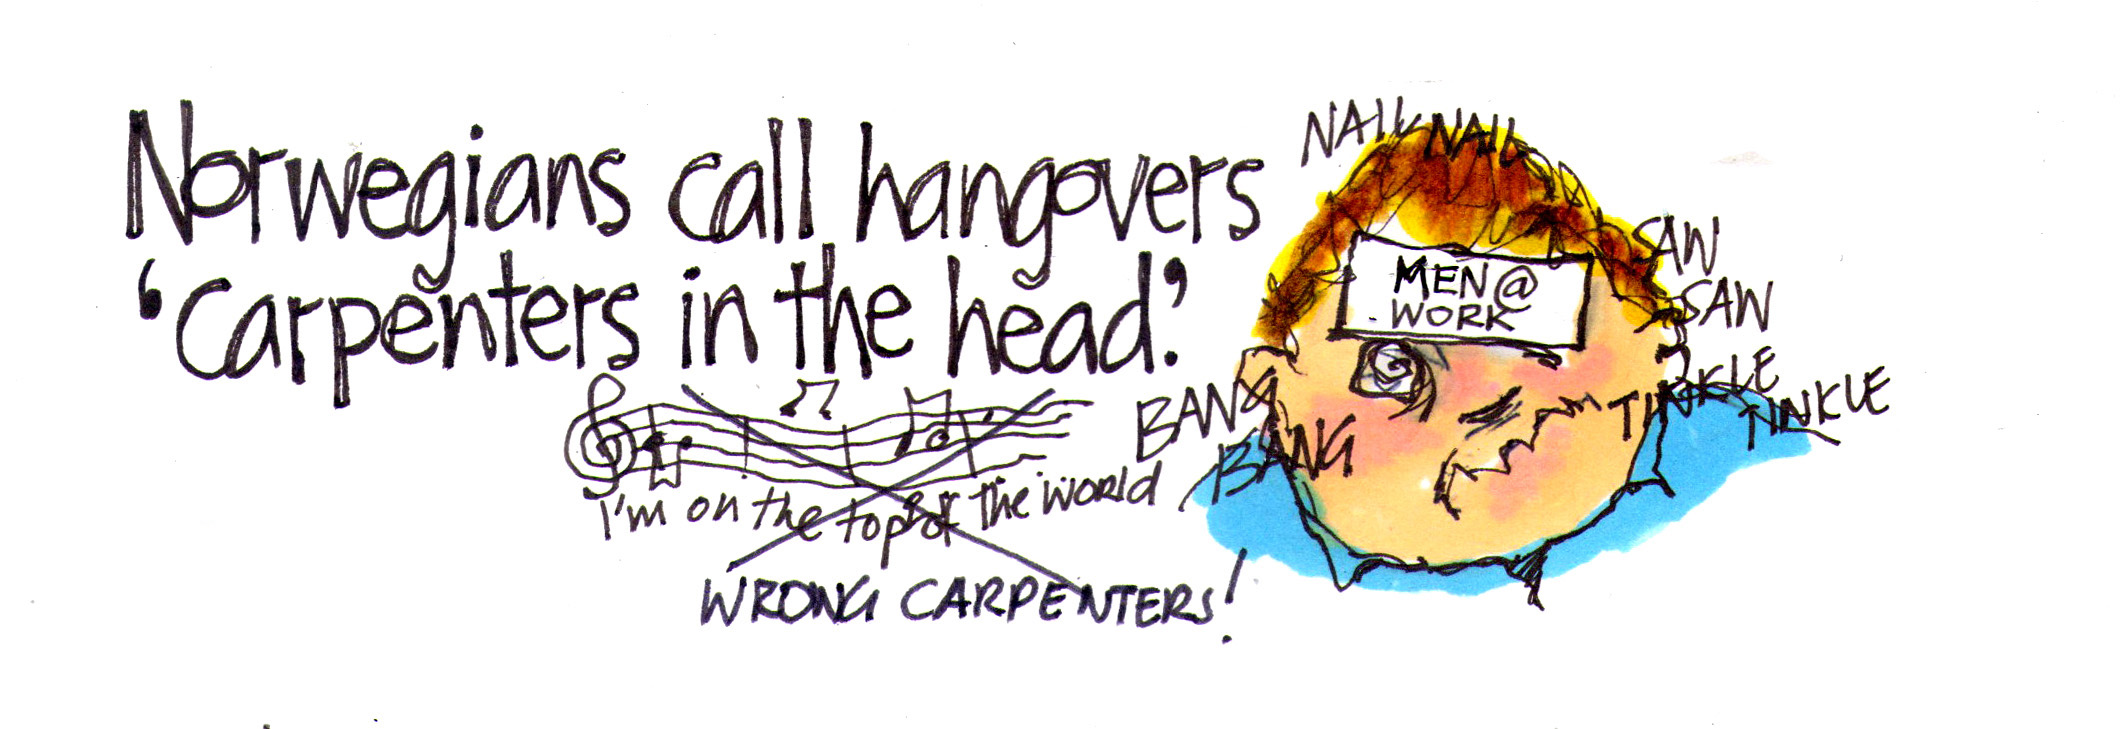 Norwegians call hangovers
'Carpenters in the head.'
I'm on the top of the world
WRONG CARPENTERS!
NAIL NAIL
SAW
SAW
MEN @
WORK
BANG
BANG
TINKLE
TINKLE